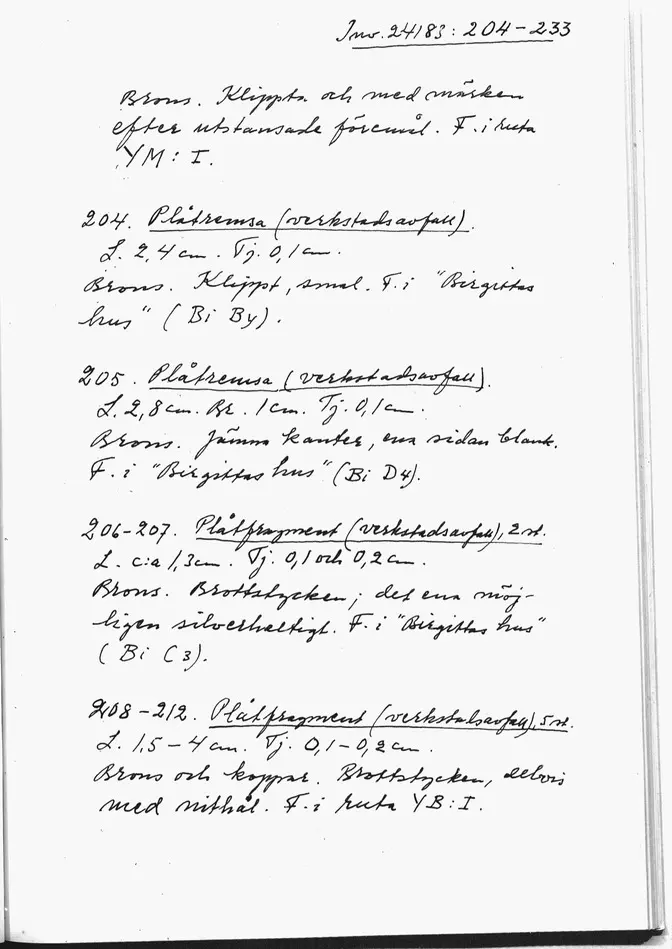 Inv. 24183: 204-233
Brons. Klippta och med märken
efter utstansade föremål. F. i ruta
YM: I.
204. Plåtremsa (verkstadsavfall).
L. 2,4 cm. Tj. 0,1 cm.
Brons. Klippt, smal. F. i "Birgittas
hus" (Bi By).
205. Plåtremsa (verkstadsavfall).
L. 2,8 cm. Br. 1 cm. Tj. 0,1 cm.
Brons. Jämna kanter, ena sidan blank.
F. i "Birgittas hus" (Bi D4).
206-207. Plåtfragment (verkstadsavfall), 2 st.
L. c:a 1,3 cm. Tj. 0,1 och 0,2 cm.
Brons. Brottstycken; det ena möj-
ligen silverhaltigt. F. i "Birgittas hus"
(Bi C3).
208-212. Plåtfragment (verkstadsavfall), 5 st.
L. 1,5-4 cm. Tj. 0,1-0,2 cm.
Brons och koppar. Brottstycken, delvis
med nithål. F. i ruta YB: I.